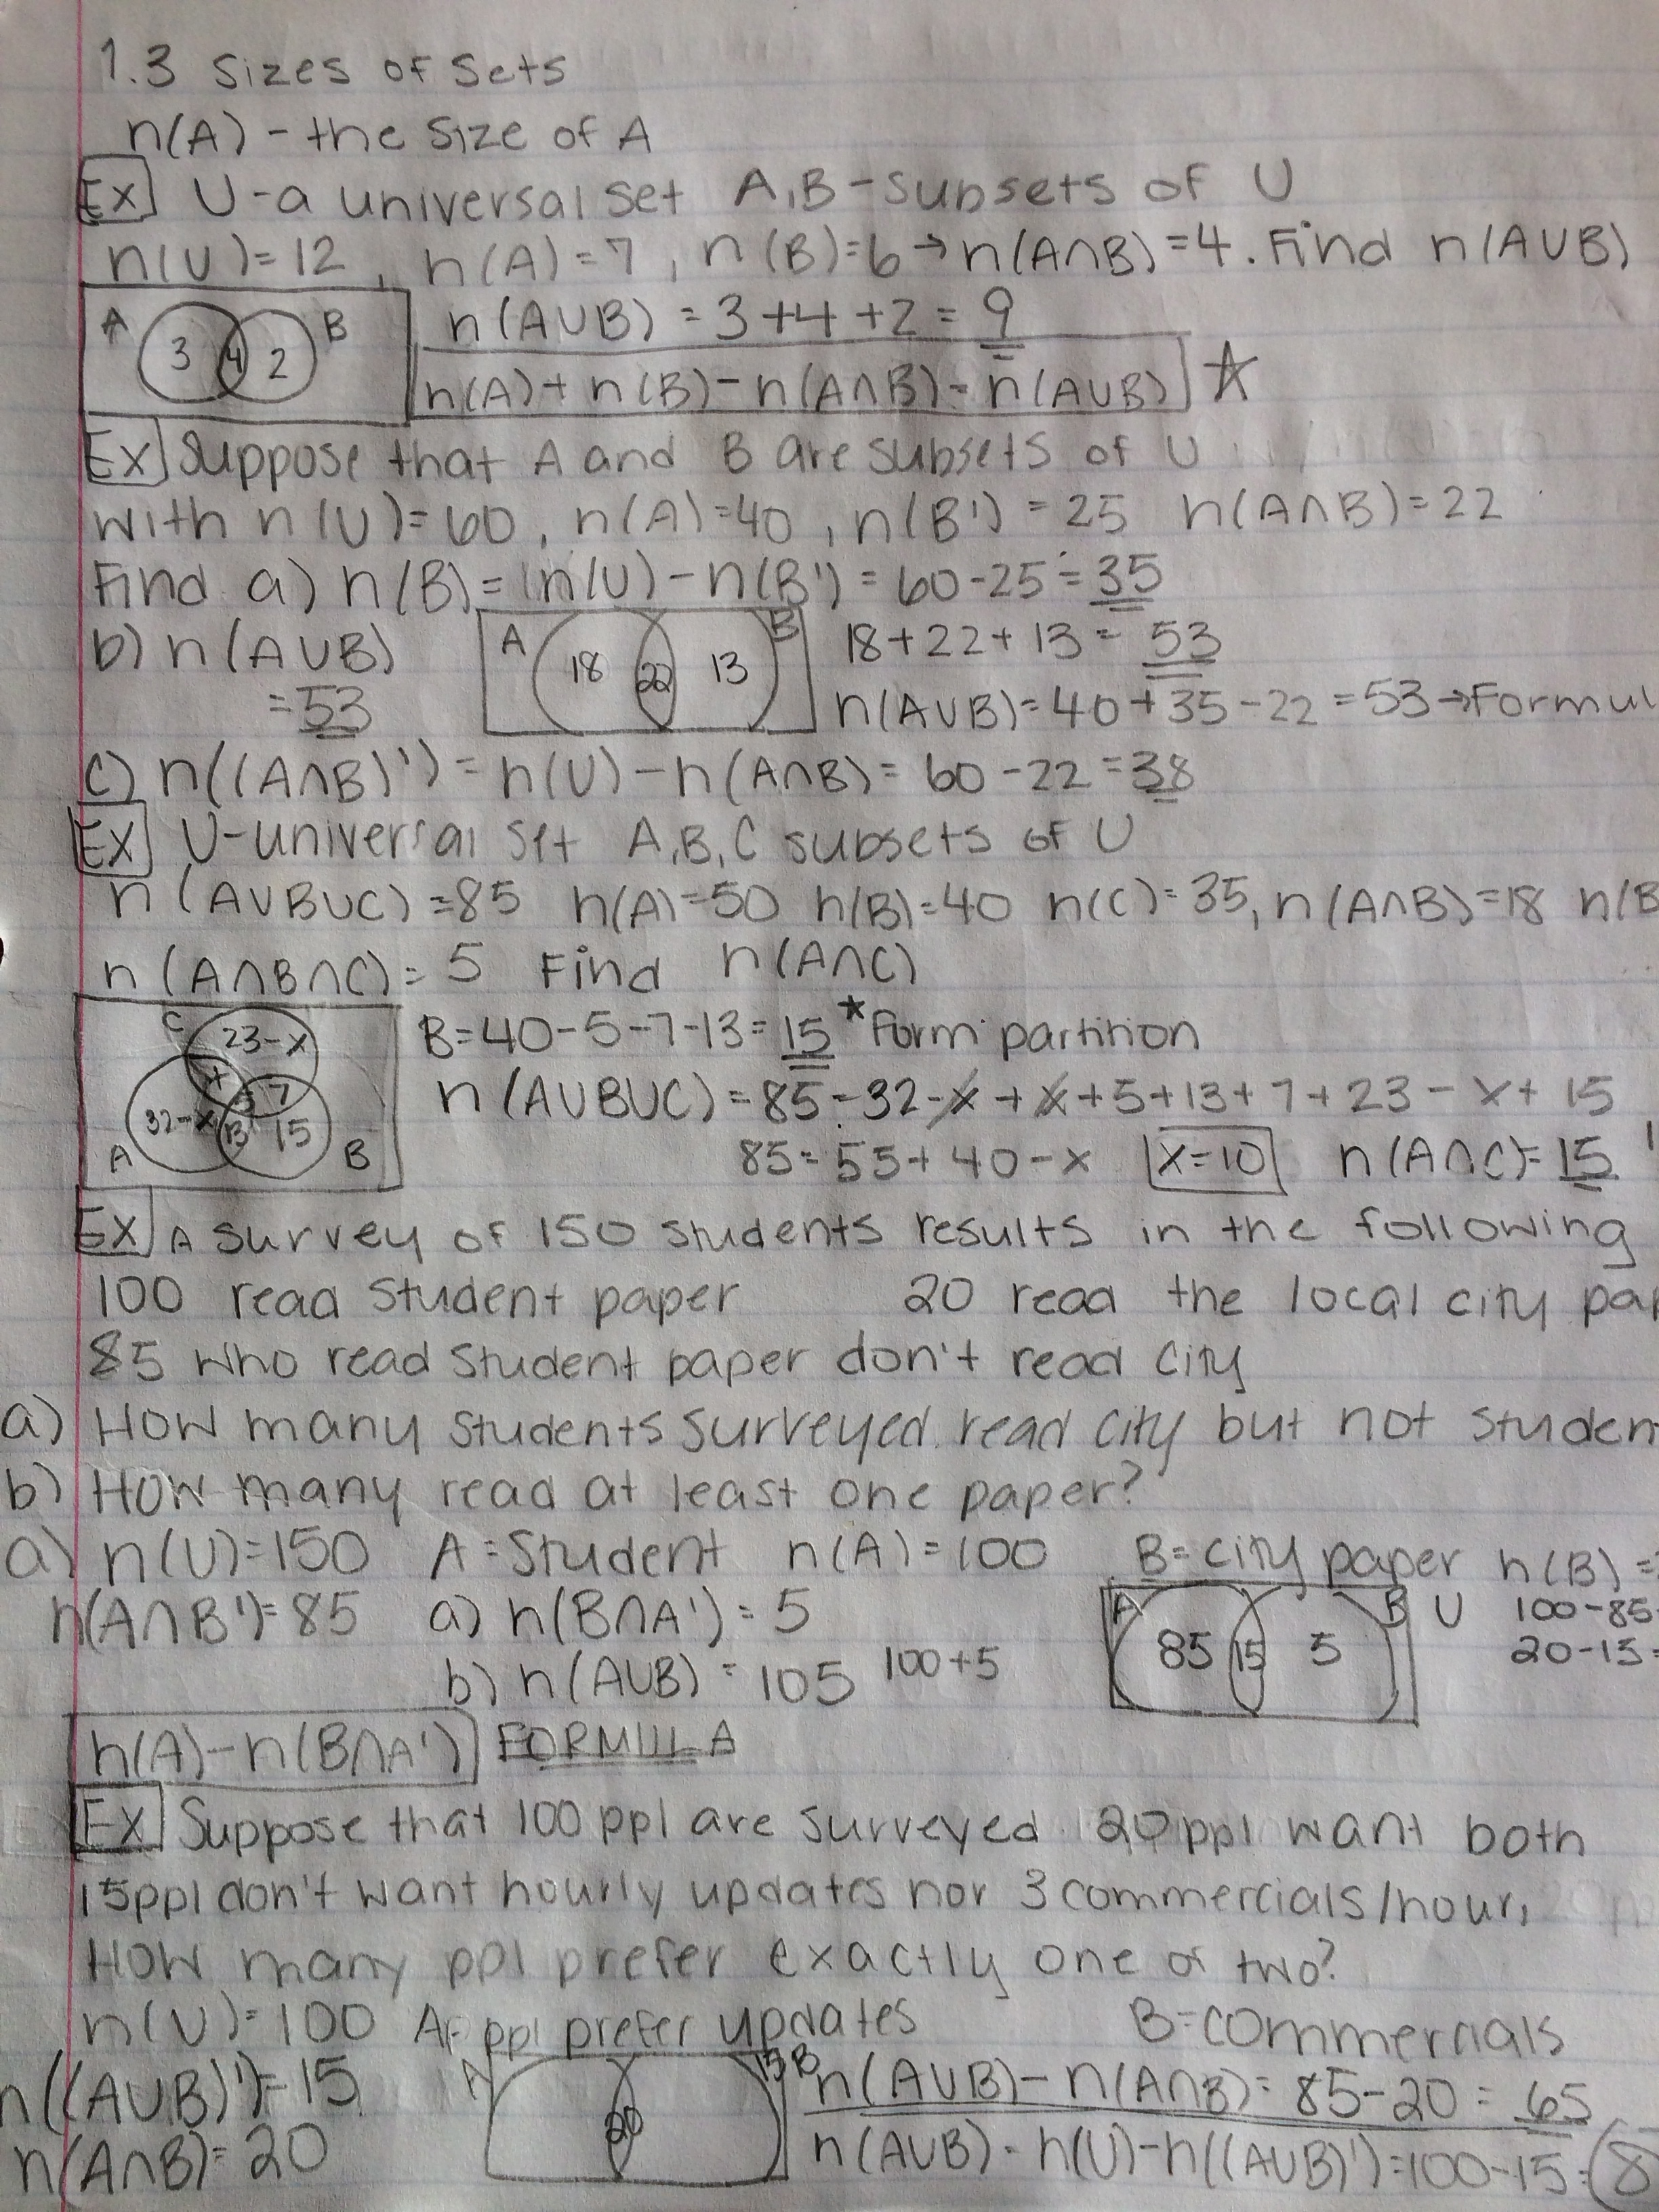 1.3 Sizes of Sets
n(A) - the size of A
Ex U-a universal set A,B-subsets of U
n(U)=12, n(A)=7, n(B)=6→n(A∩B)=4. Find n(A∪B)
A 3 4 2 B n(A∪B) = 3+4+2=9
n(A)+n(B)-n(A∩B)=n(A∪B) ☆
Ex Suppose that A and B are subsets of U
with n(U)=60, n(A)=40, n(B')=25 n(A∩B)=22
Find a) n(B)=n(U)-n(B')=60-25=35
b) n(A∪B) A 18 22 13 B 18+22+13=53
=53 n(A∪B)=40+35-22=53→Formul
c) n((A∩B)')=n(U)-n(A∩B)=60-22=38
Ex U-universal set A,B,C subsets of U
n(A∪B∪C)=85 n(A)=50 n(B)=40 n(C)=35, n(A∩B)=18 n(B
n(A∩B∩C)=5 Find n(A∩C)
C 23-x B=40-5-7-13=15 *Form partition
x 5 7 n(A∪B∪C)=85=32-x+x+5+13+7+23-x+15
A 32-x 13 15 B 85=55+40-x x=10 n(A∩C)=15
Ex A survey of 150 students results in the following
100 read student paper 20 read the local city pap
85 who read student paper don't read city
a) How many students surveyed read city but not studen
b) How many read at least one paper?
a) n(U)=150 A=Student n(A)=100 B=city paper n(B)=
n(A∩B')=85 a) n(B∩A')=5 A 85 15 5 B U 100-85
b) n(A∪B)=105 100+5 20-15=
n(A)-n(B∩A') FORMULA
Ex Suppose that 100 ppl are surveyed 20 ppl want both
15ppl don't want hourly updates nor 3 commercials/hour,
How many ppl prefer exactly one of two?
n(U)=100 A=ppl prefer updates B=commercials
n((A∪B)')=15 A 20 15 B n(A∪B)-n(A∩B)=85-20=65
n(A∩B)=20 n(A∪B)=n(U)-n((A∪B)')=100-15=8